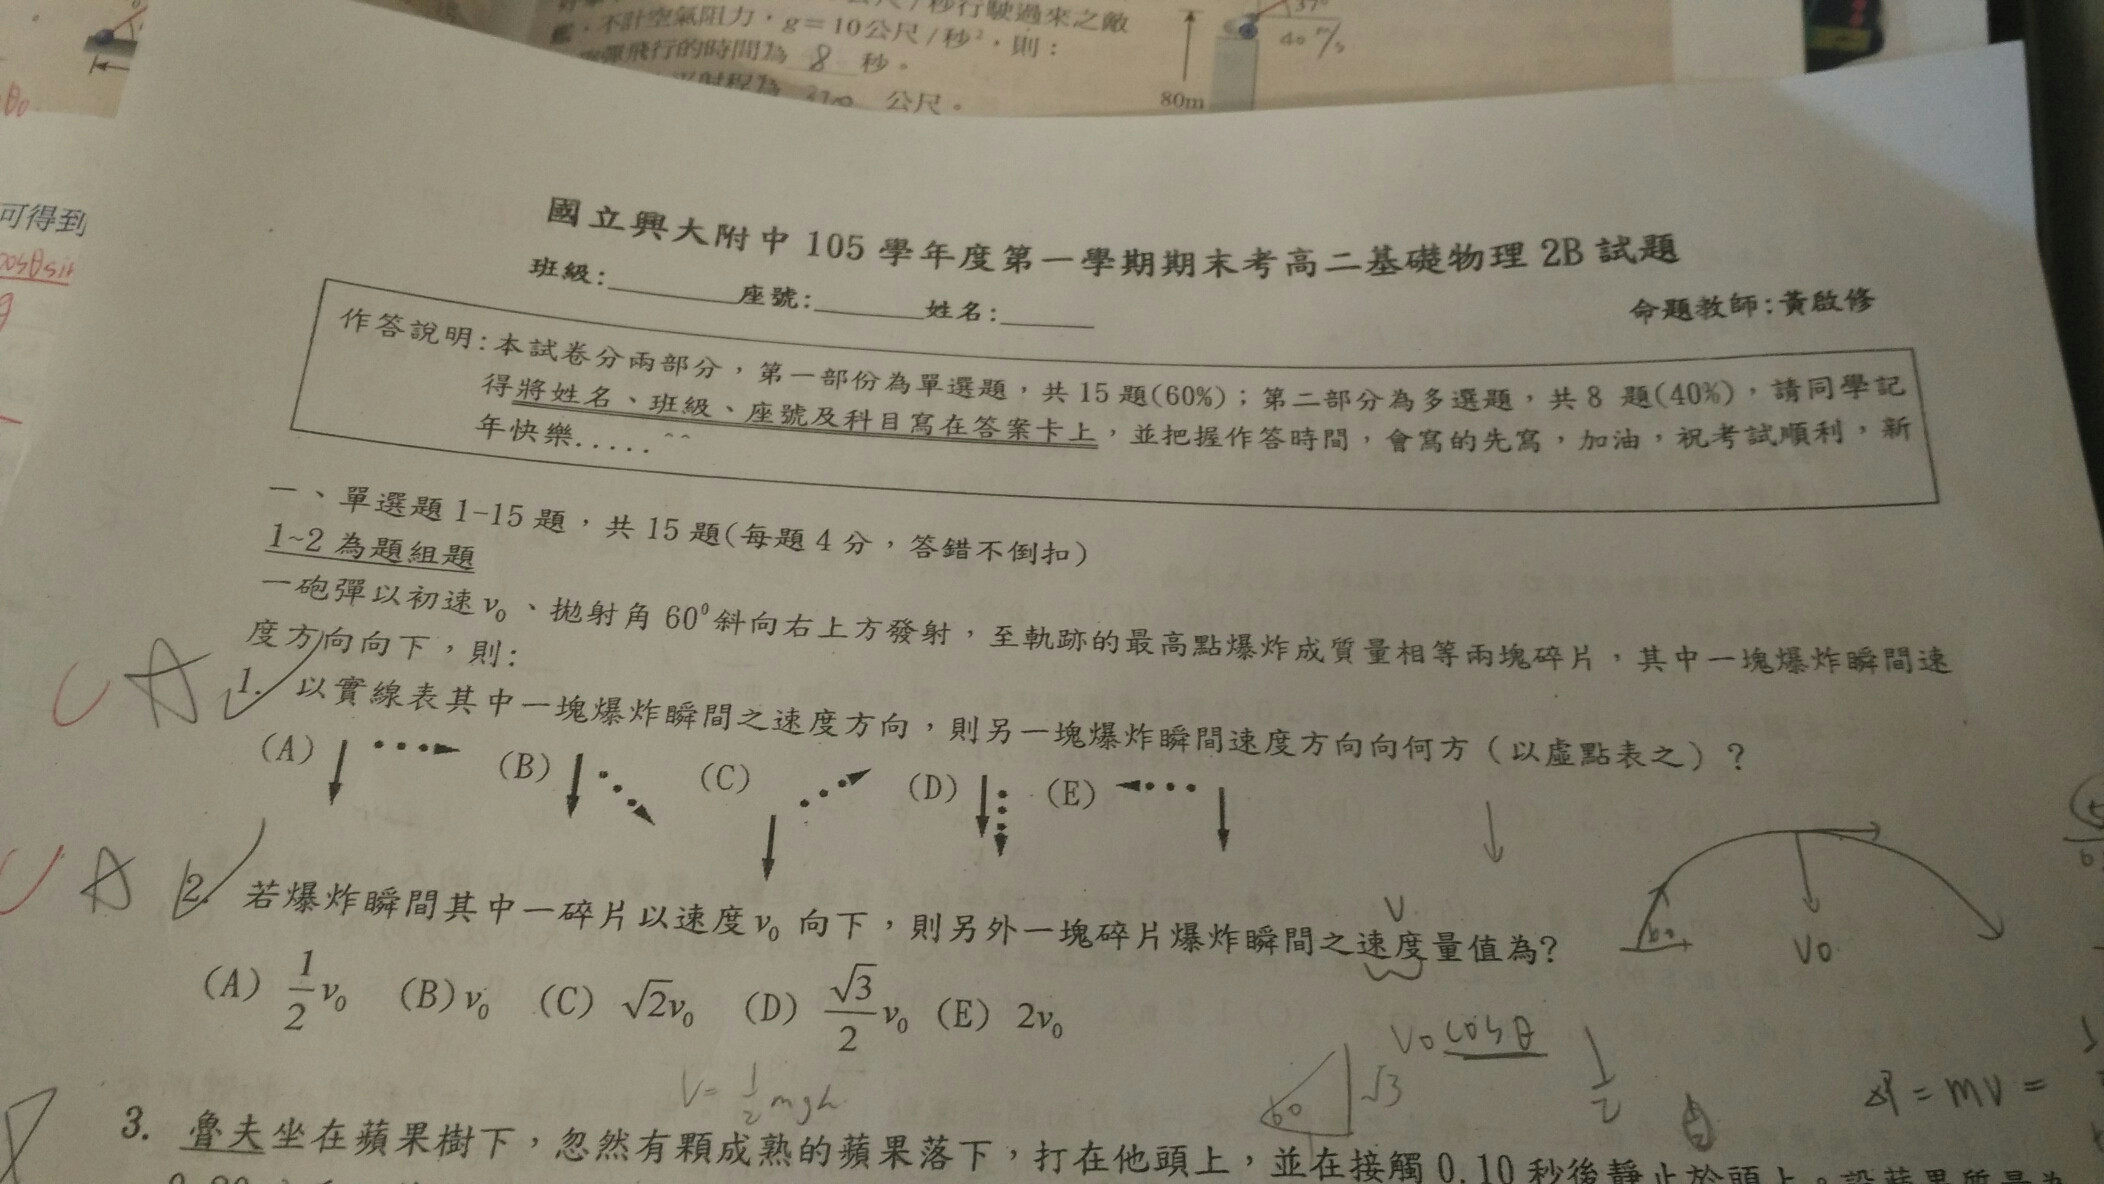 公尺/秒行駛過來之敵
不計空氣阻力,g=10公尺/秒²,則:
彈飛行的時間為 8 秒。
公尺。
37°
40 m/s
80m
θ0
可得到
cosθsin
g
國立興大附中 105 學年度第一學期期末考高二基礎物理 2B 試題
班級:______座號:______姓名:______
命題教師:黃啟修
作答說明:本試卷分兩部分,第一部份為單選題,共 15 題(60%);第二部分為多選題,共 8 題(40%),請同學記
得將姓名、班級、座號及科目寫在答案卡上,並把握作答時間,會寫的先寫,加油,祝考試順利,新
年快樂.....^^
一、單選題 1-15 題,共 15 題(每題 4 分,答錯不倒扣)
1~2 為題組題
一砲彈以初速 v₀、拋射角 60⁰斜向右上方發射,至軌跡的最高點爆炸成質量相等兩塊碎片,其中一塊爆炸瞬間速
度方向向下,則:
A
1. 以實線表其中一塊爆炸瞬間之速度方向,則另一塊爆炸瞬間速度方向向何方(以虛點表之)?
(A) (B) (C) (D) (E)
A
2. 若爆炸瞬間其中一碎片以速度 v₀ 向下,則另外一塊碎片爆炸瞬間之速度量值為?
V
60
V0
(A) 1/2 v₀ (B) v₀ (C) √2v₀ (D) √3/2 v₀ (E) 2v₀
V0 cosθ
1/2
V= 1/2 mgh
60
√3
ΔP = mV =
3. 魯夫坐在蘋果樹下,忽然有顆成熟的蘋果落下,打在他頭上,並在接觸 0.10 秒後靜止於頭上。設蘋果質量為